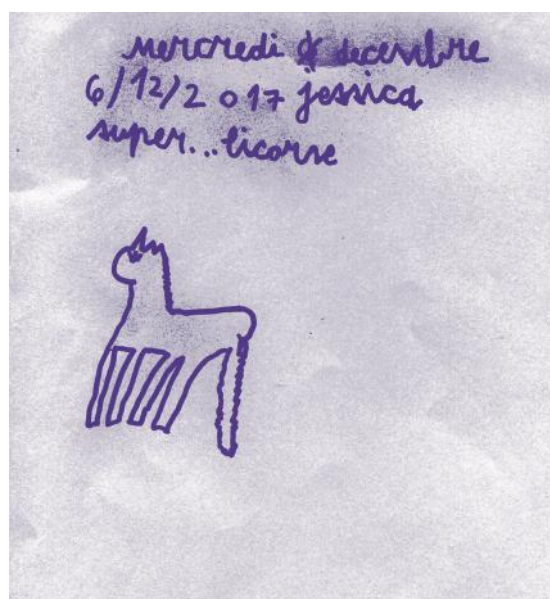 mercredi 6 decembre
6/12/2017 jessica
super...licorne